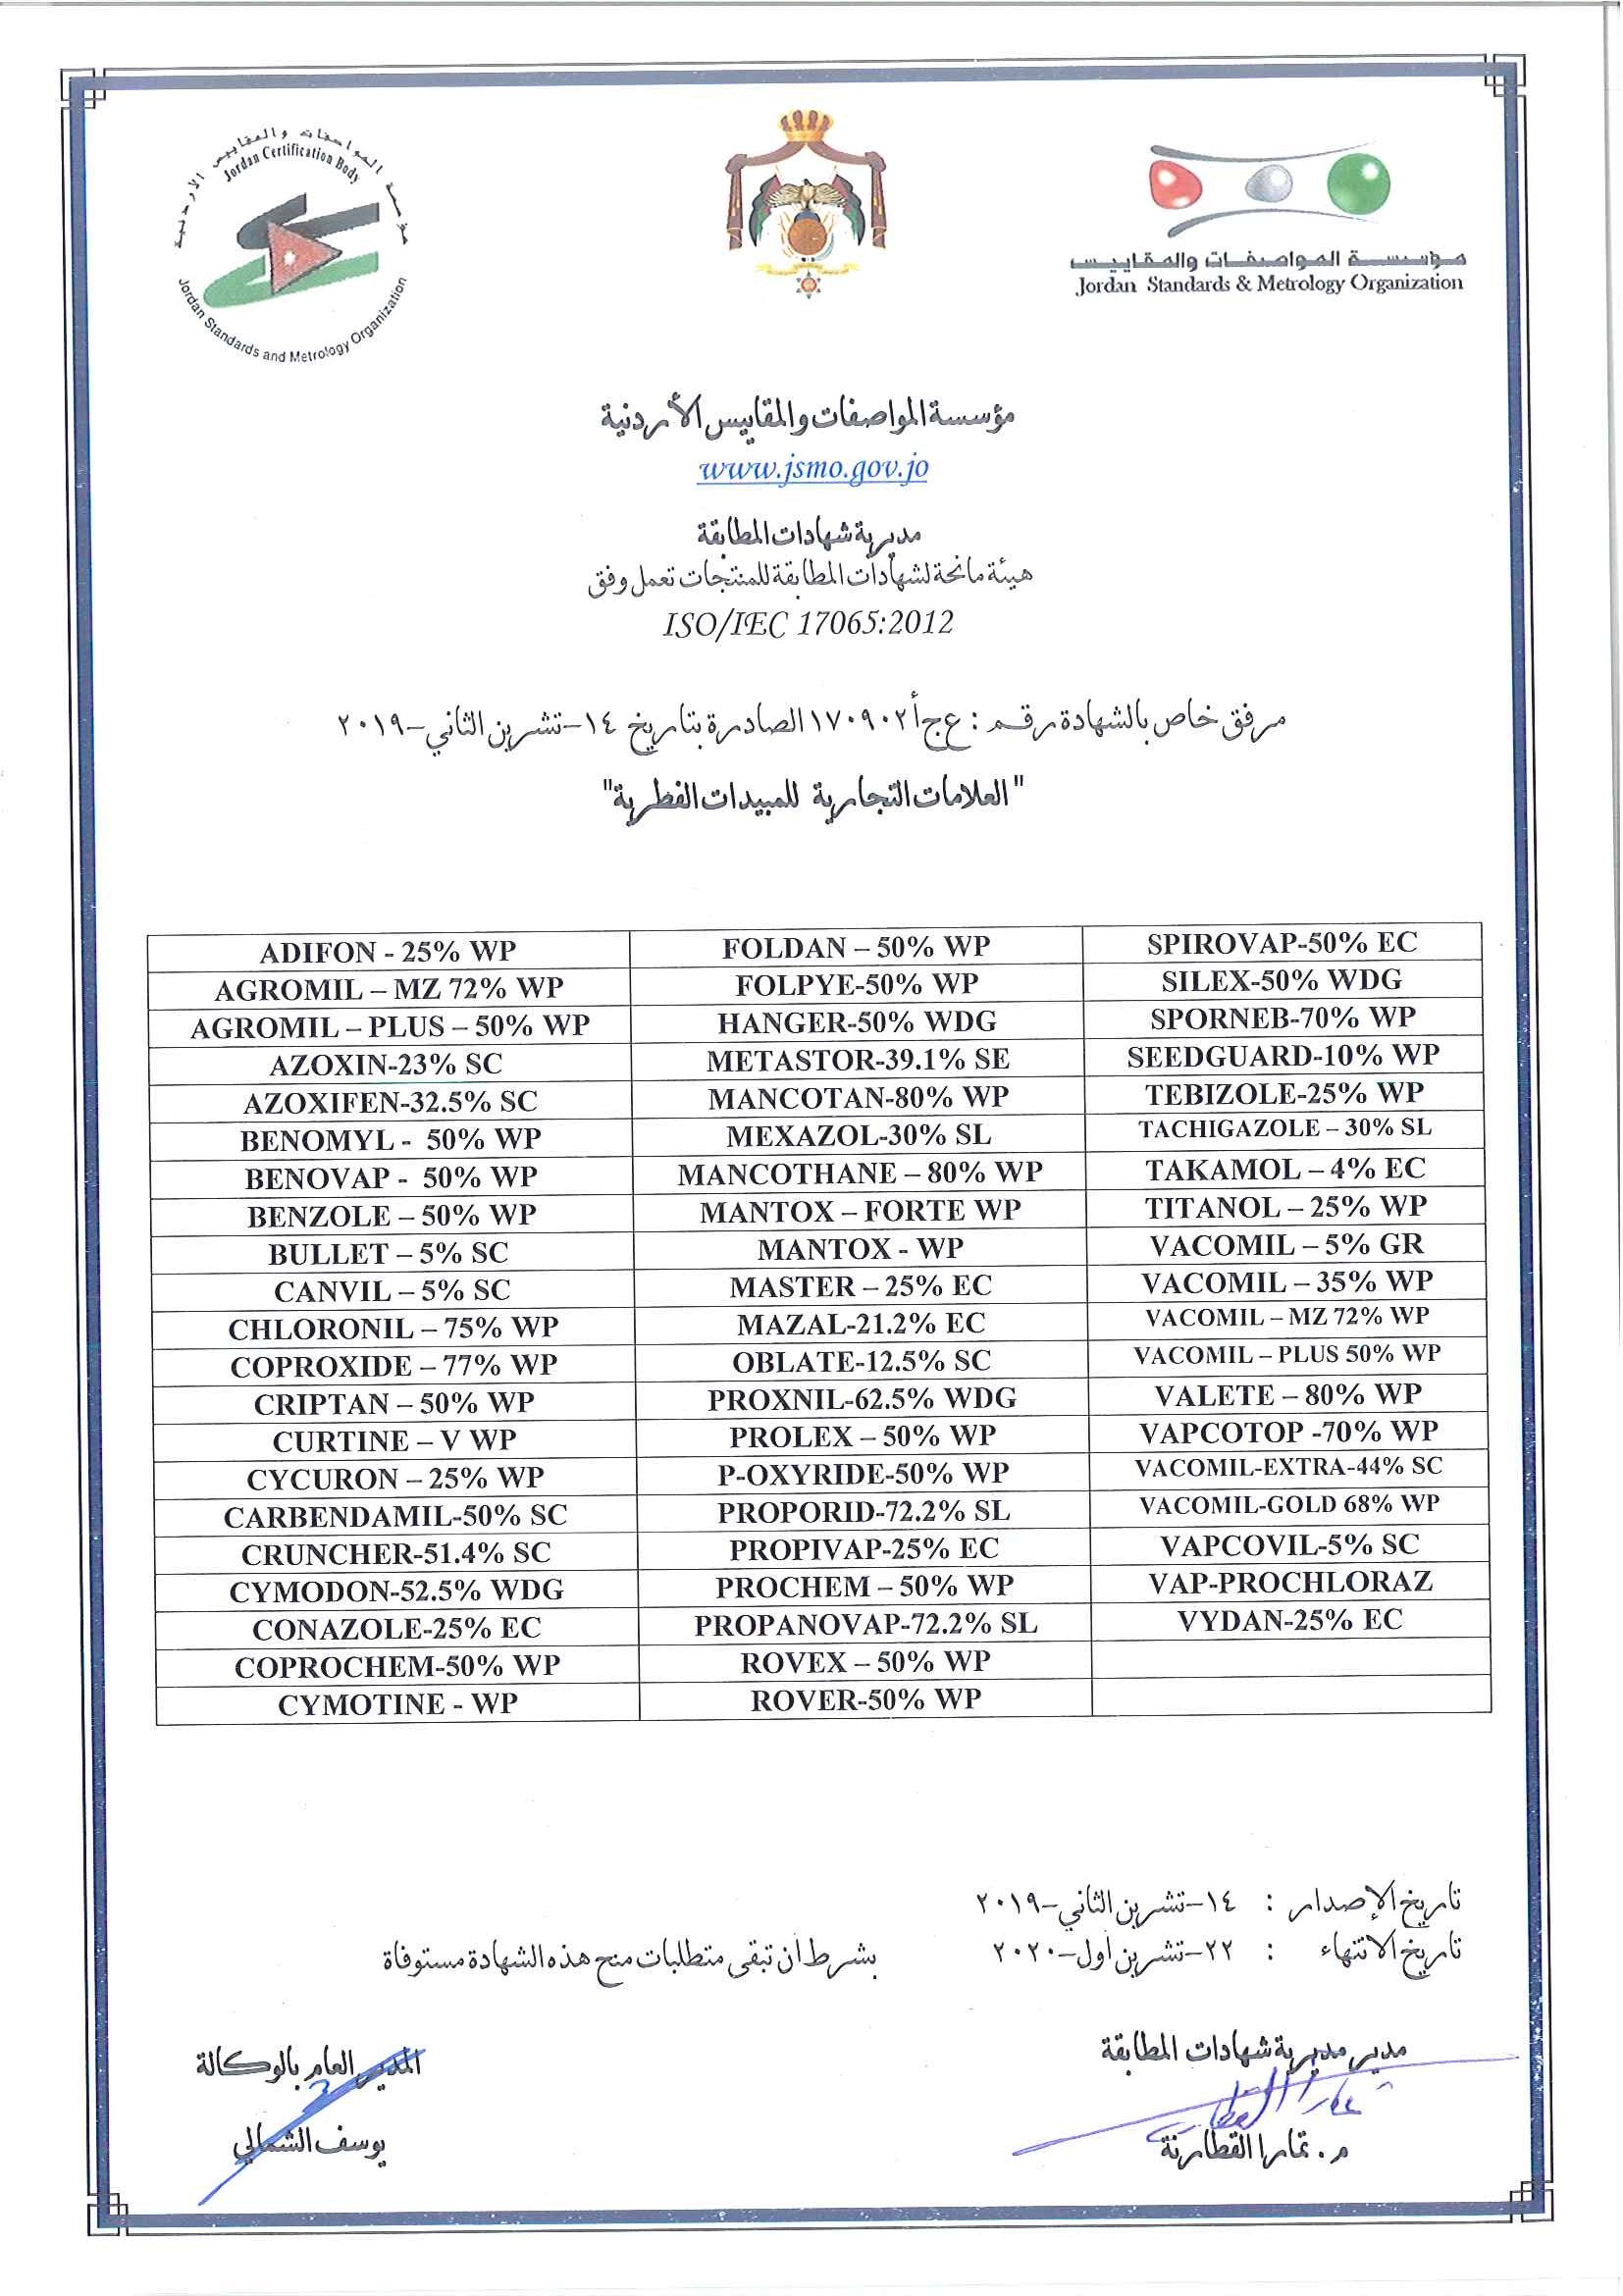 مؤسسة المواصفات والمقاييس الأردنية
Jordan Certification Body
Jordan Standards and Metrology Organization
مؤسسة المواصفات والمقاييس
Jordan Standards & Metrology Organization
مؤسسة المواصفات والمقاييس الأردنية
www.jsmo.gov.jo
مديرية شهادات المطابقة
هيئة مانحة لشهادات المطابقة للمنتجات تعمل وفق
ISO/IEC 17065:2012
مرفق خاص بالشهادة رقم : ع ج أ ١٧٠٩٠٢ الصادرة بتاريخ ١٤-تشرين الثاني-٢٠١٩
"العلامات التجارية للمبيدات الفطرية"
ADIFON - 25% WP FOLDAN – 50% WP SPIROVAP-50% EC
AGROMIL – MZ 72% WP FOLPYE-50% WP SILEX-50% WDG
AGROMIL – PLUS – 50% WP HANGER-50% WDG SPORNEB-70% WP
AZOXIN-23% SC METASTOR-39.1% SE SEEDGUARD-10% WP
AZOXIFEN-32.5% SC MANCOTAN-80% WP TEBIZOLE-25% WP
BENOMYL - 50% WP MEXAZOL-30% SL TACHIGAZOLE – 30% SL
BENOVAP - 50% WP MANCOTHANE – 80% WP TAKAMOL – 4% EC
BENZOLE – 50% WP MANTOX – FORTE WP TITANOL – 25% WP
BULLET – 5% SC MANTOX - WP VACOMIL – 5% GR
CANVIL – 5% SC MASTER – 25% EC VACOMIL – 35% WP
CHLORONIL – 75% WP MAZAL-21.2% EC VACOMIL – MZ 72% WP
COPROXIDE – 77% WP OBLATE-12.5% SC VACOMIL – PLUS 50% WP
CRIPTAN – 50% WP PROXNIL-62.5% WDG VALETE – 80% WP
CURTINE – V WP PROLEX – 50% WP VAPCOTOP -70% WP
CYCURON – 25% WP P-OXYRIDE-50% WP VACOMIL-EXTRA-44% SC
CARBENDAMIL-50% SC PROPORID-72.2% SL VACOMIL-GOLD 68% WP
CRUNCHER-51.4% SC PROPIVAP-25% EC VAPCOVIL-5% SC
CYMODON-52.5% WDG PROCHEM – 50% WP VAP-PROCHLORAZ
CONAZOLE-25% EC PROPANOVAP-72.2% SL VYDAN-25% EC
COPROCHEM-50% WP ROVEX – 50% WP
CYMOTINE - WP ROVER-50% WP
تاريخ الإصدار : ١٤-تشرين الثاني-٢٠١٩
تاريخ الانتهاء : ٢٢-تشرين أول-٢٠٢٠ بشرط أن تبقى متطلبات منح هذه الشهادة مستوفاة
مدير مديرية شهادات المطابقة
المدير العام بالوكالة
م. تمارا القطارنة
يوسف الشمالي